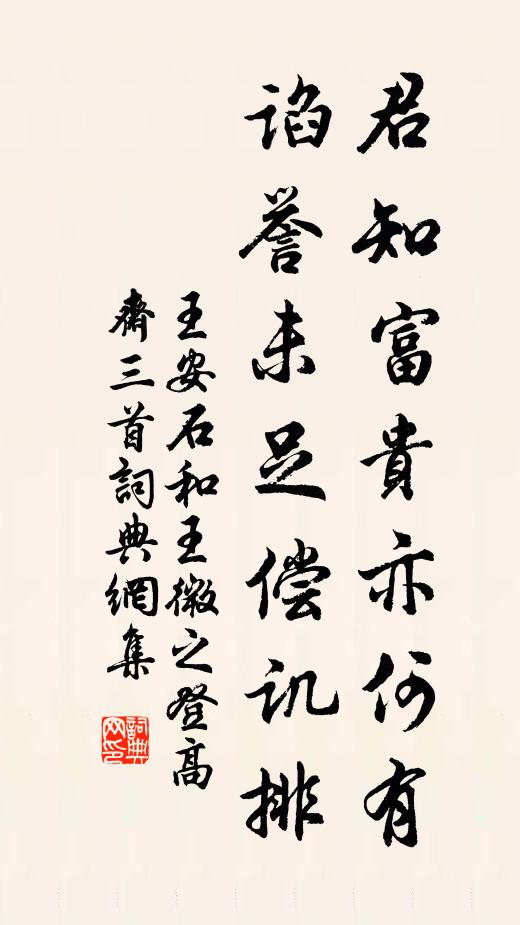 君知富貴亦何有
谄誉未足偿讥排
王安石和王微之登高
齋三首詞典網集
詞典
网印